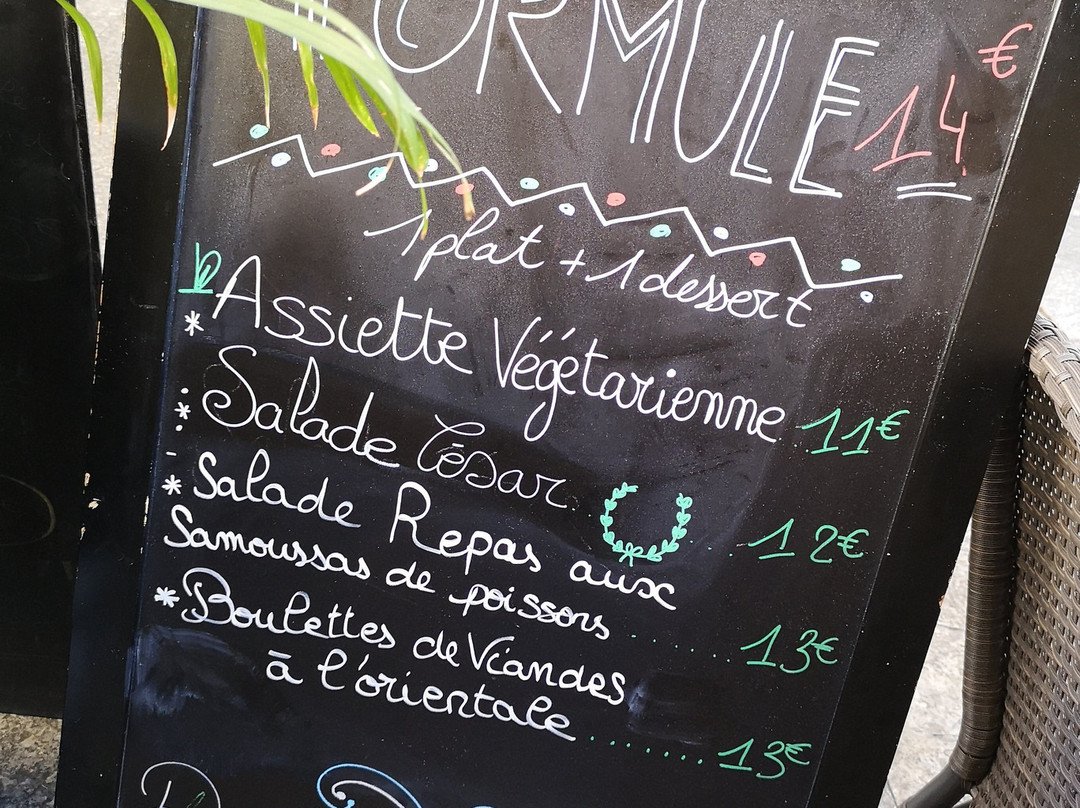 FORMULE 14€
1 plat + 1 dessert
* Assiette Végétarienne 11€
* Salade César 12€
* Salade Repas aux
Samoussas de poissons ........ 13€
* Boulettes de Viandes
à l'orientale .......... 13€